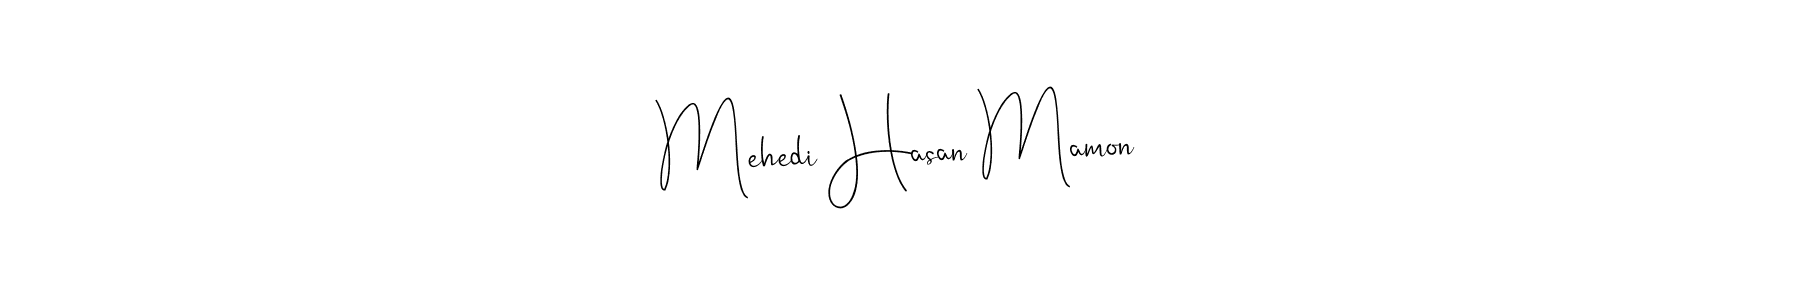 Mehedi Hasan Mamon